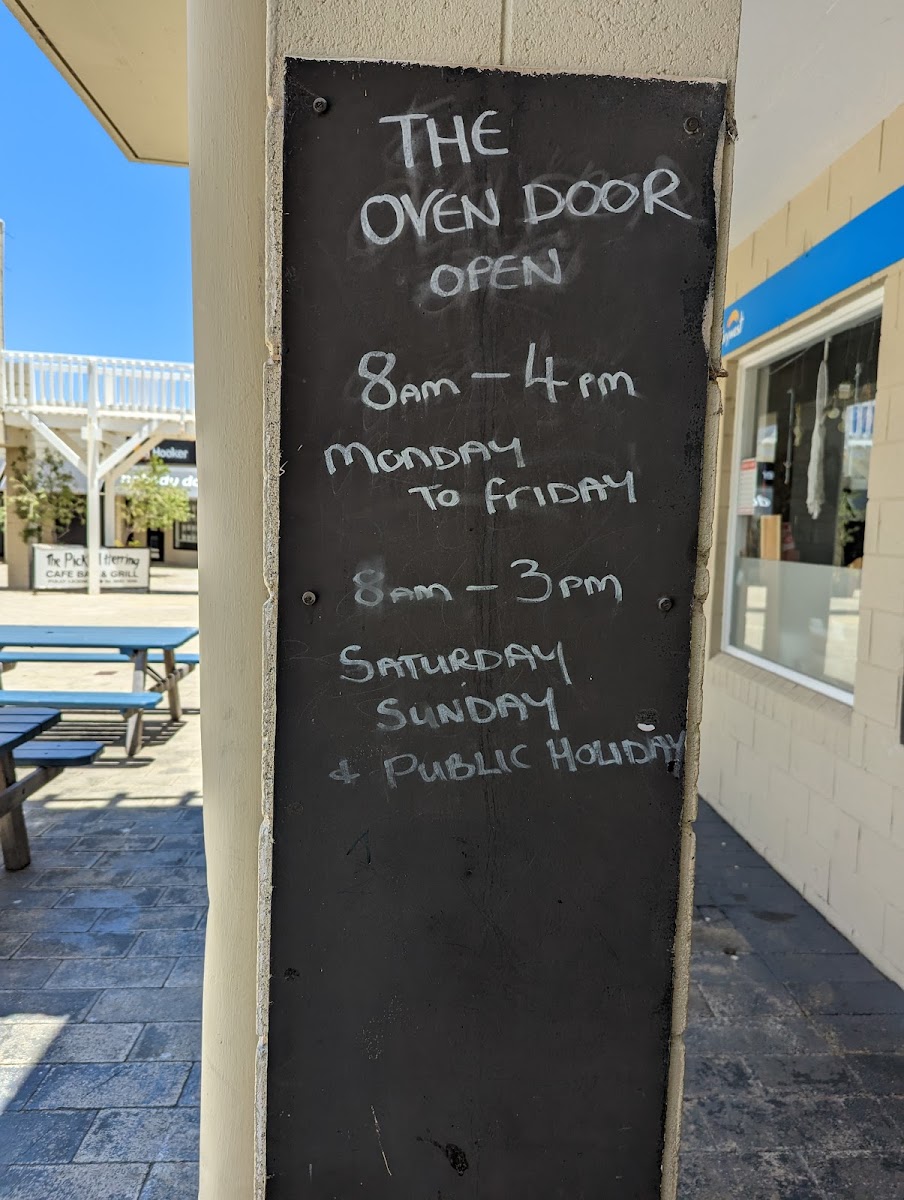 THE
OVEN DOOR
OPEN
8AM – 4PM
MONDAY
TO FRIDAY
8AM – 3PM
SATURDAY
SUNDAY
& PUBLIC HOLIDAY
Hooker
The Pickled Herring
CAFE BAR & GRILL